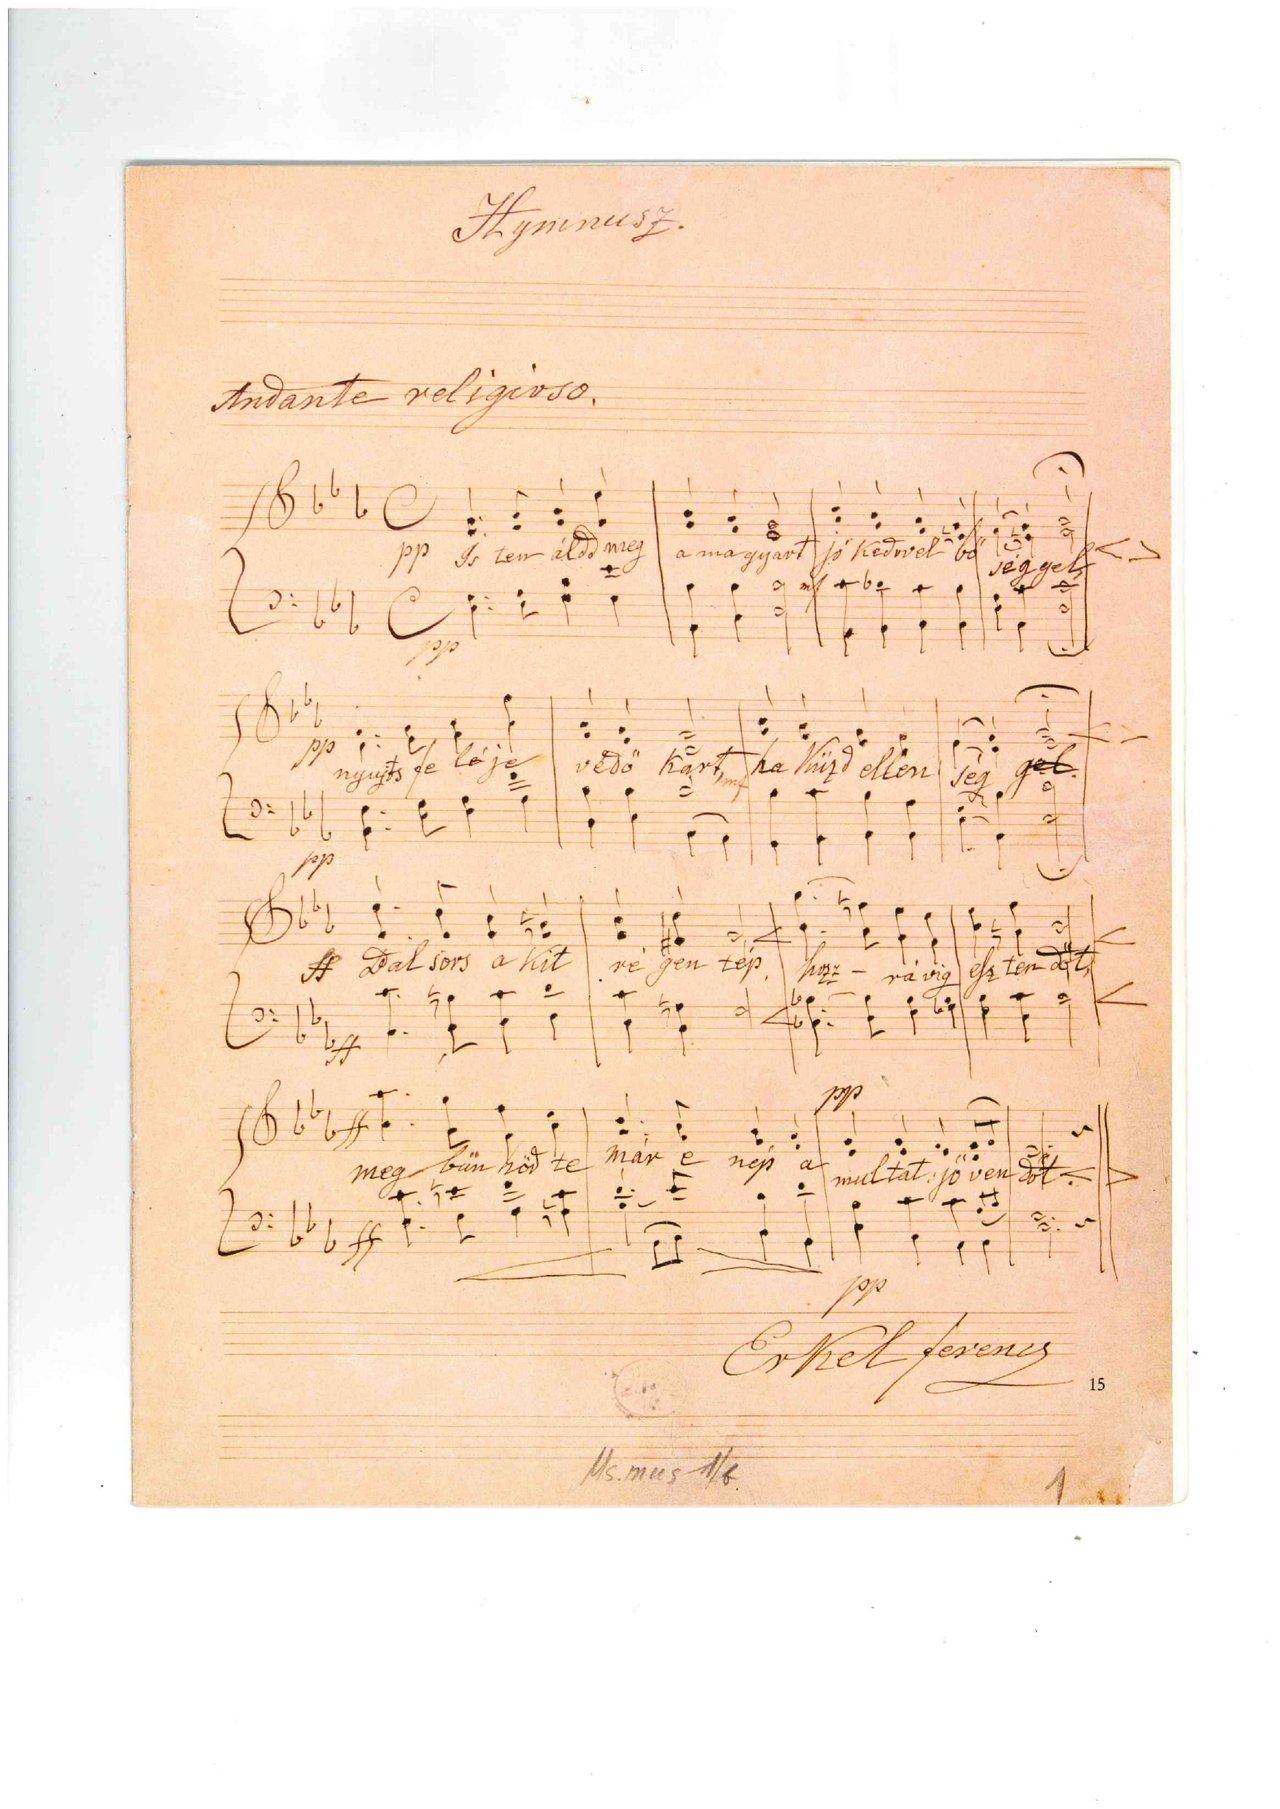 Hymnusz.
Andante religioso.
pp Is ten áldd meg a magyart jó kedvvel bő séggel,
mf
pp
pp nyujts fe léje védő kart, ha küzd ellen ség gel.
mf
pp
ff Bal sors a kit ré gen tép, hozz - rá víg esz ten dőt,
ff
pp
ff meg bün hőd te már e nép a multat jöven dőt
ff
pp
Erkel ferencz
15
Ms. mus 1/b
1